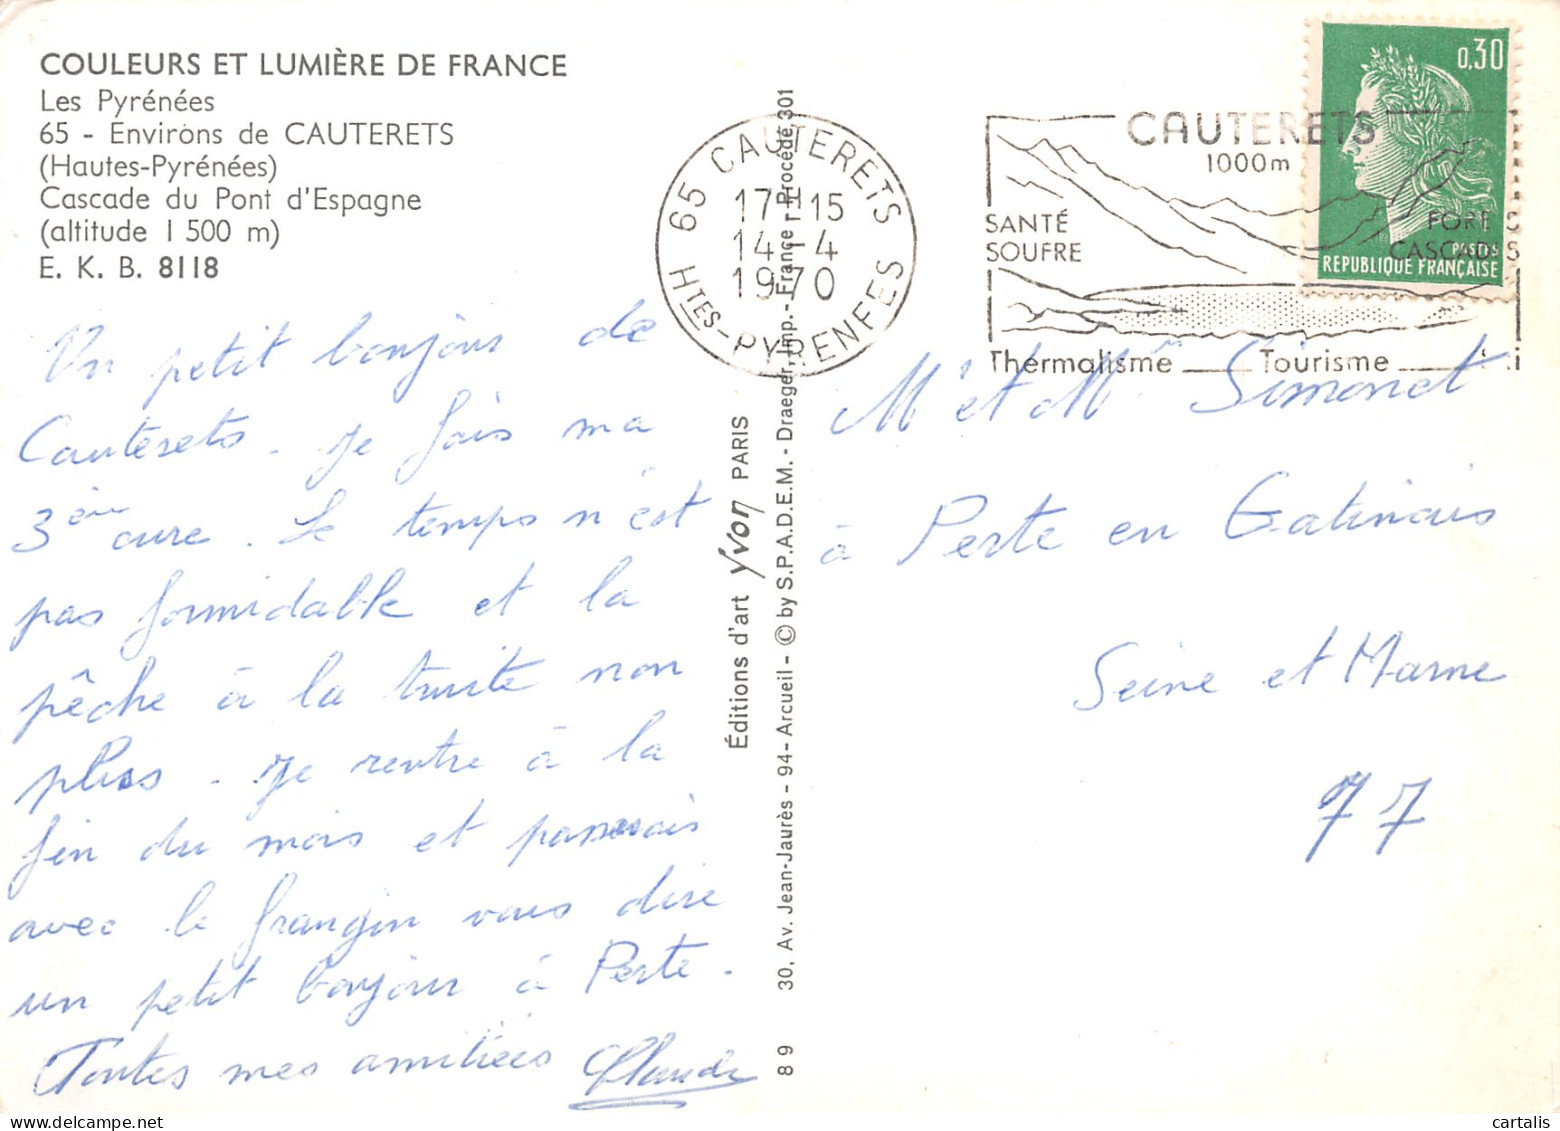 COULEURS ET LUMIÈRE DE FRANCE
Les Pyrénées
65 - Environs de CAUTERETS
(Hautes-Pyrénées)
Cascade du Pont d'Espagne
(altitude 1 500 m)
E. K. B. 8118
Un petit bonjour de
Cauterets. Je fais ma
3ème cure. Le temps n'est
pas formidable et la
pêche à la truite non
plus. Je rentre à la
fin du mois et passerais
avec le frangin vous dire
un petit bonjour à Perte.
Toutes mes amitiées Claude
Éditions d'art Yvon PARIS
30, Av. Jean-Jaurès - 94 - Arcueil - © by S.P.A.D.E.M. - Draeger, Imp. - France - Procédé 301
8 9
65 CAUTERETS
17H15
14-4
1970
HTES-PYRENEES
CAUTERETS
1000m
SANTÉ
SOUFRE
FORE S
CASCADES
Thermalisme Tourisme i
0,30
POSTES
REPUBLIQUE FRANÇAISE
Mr et Mme Simonet
à Perte en Gatinais
Seine et Marne
77